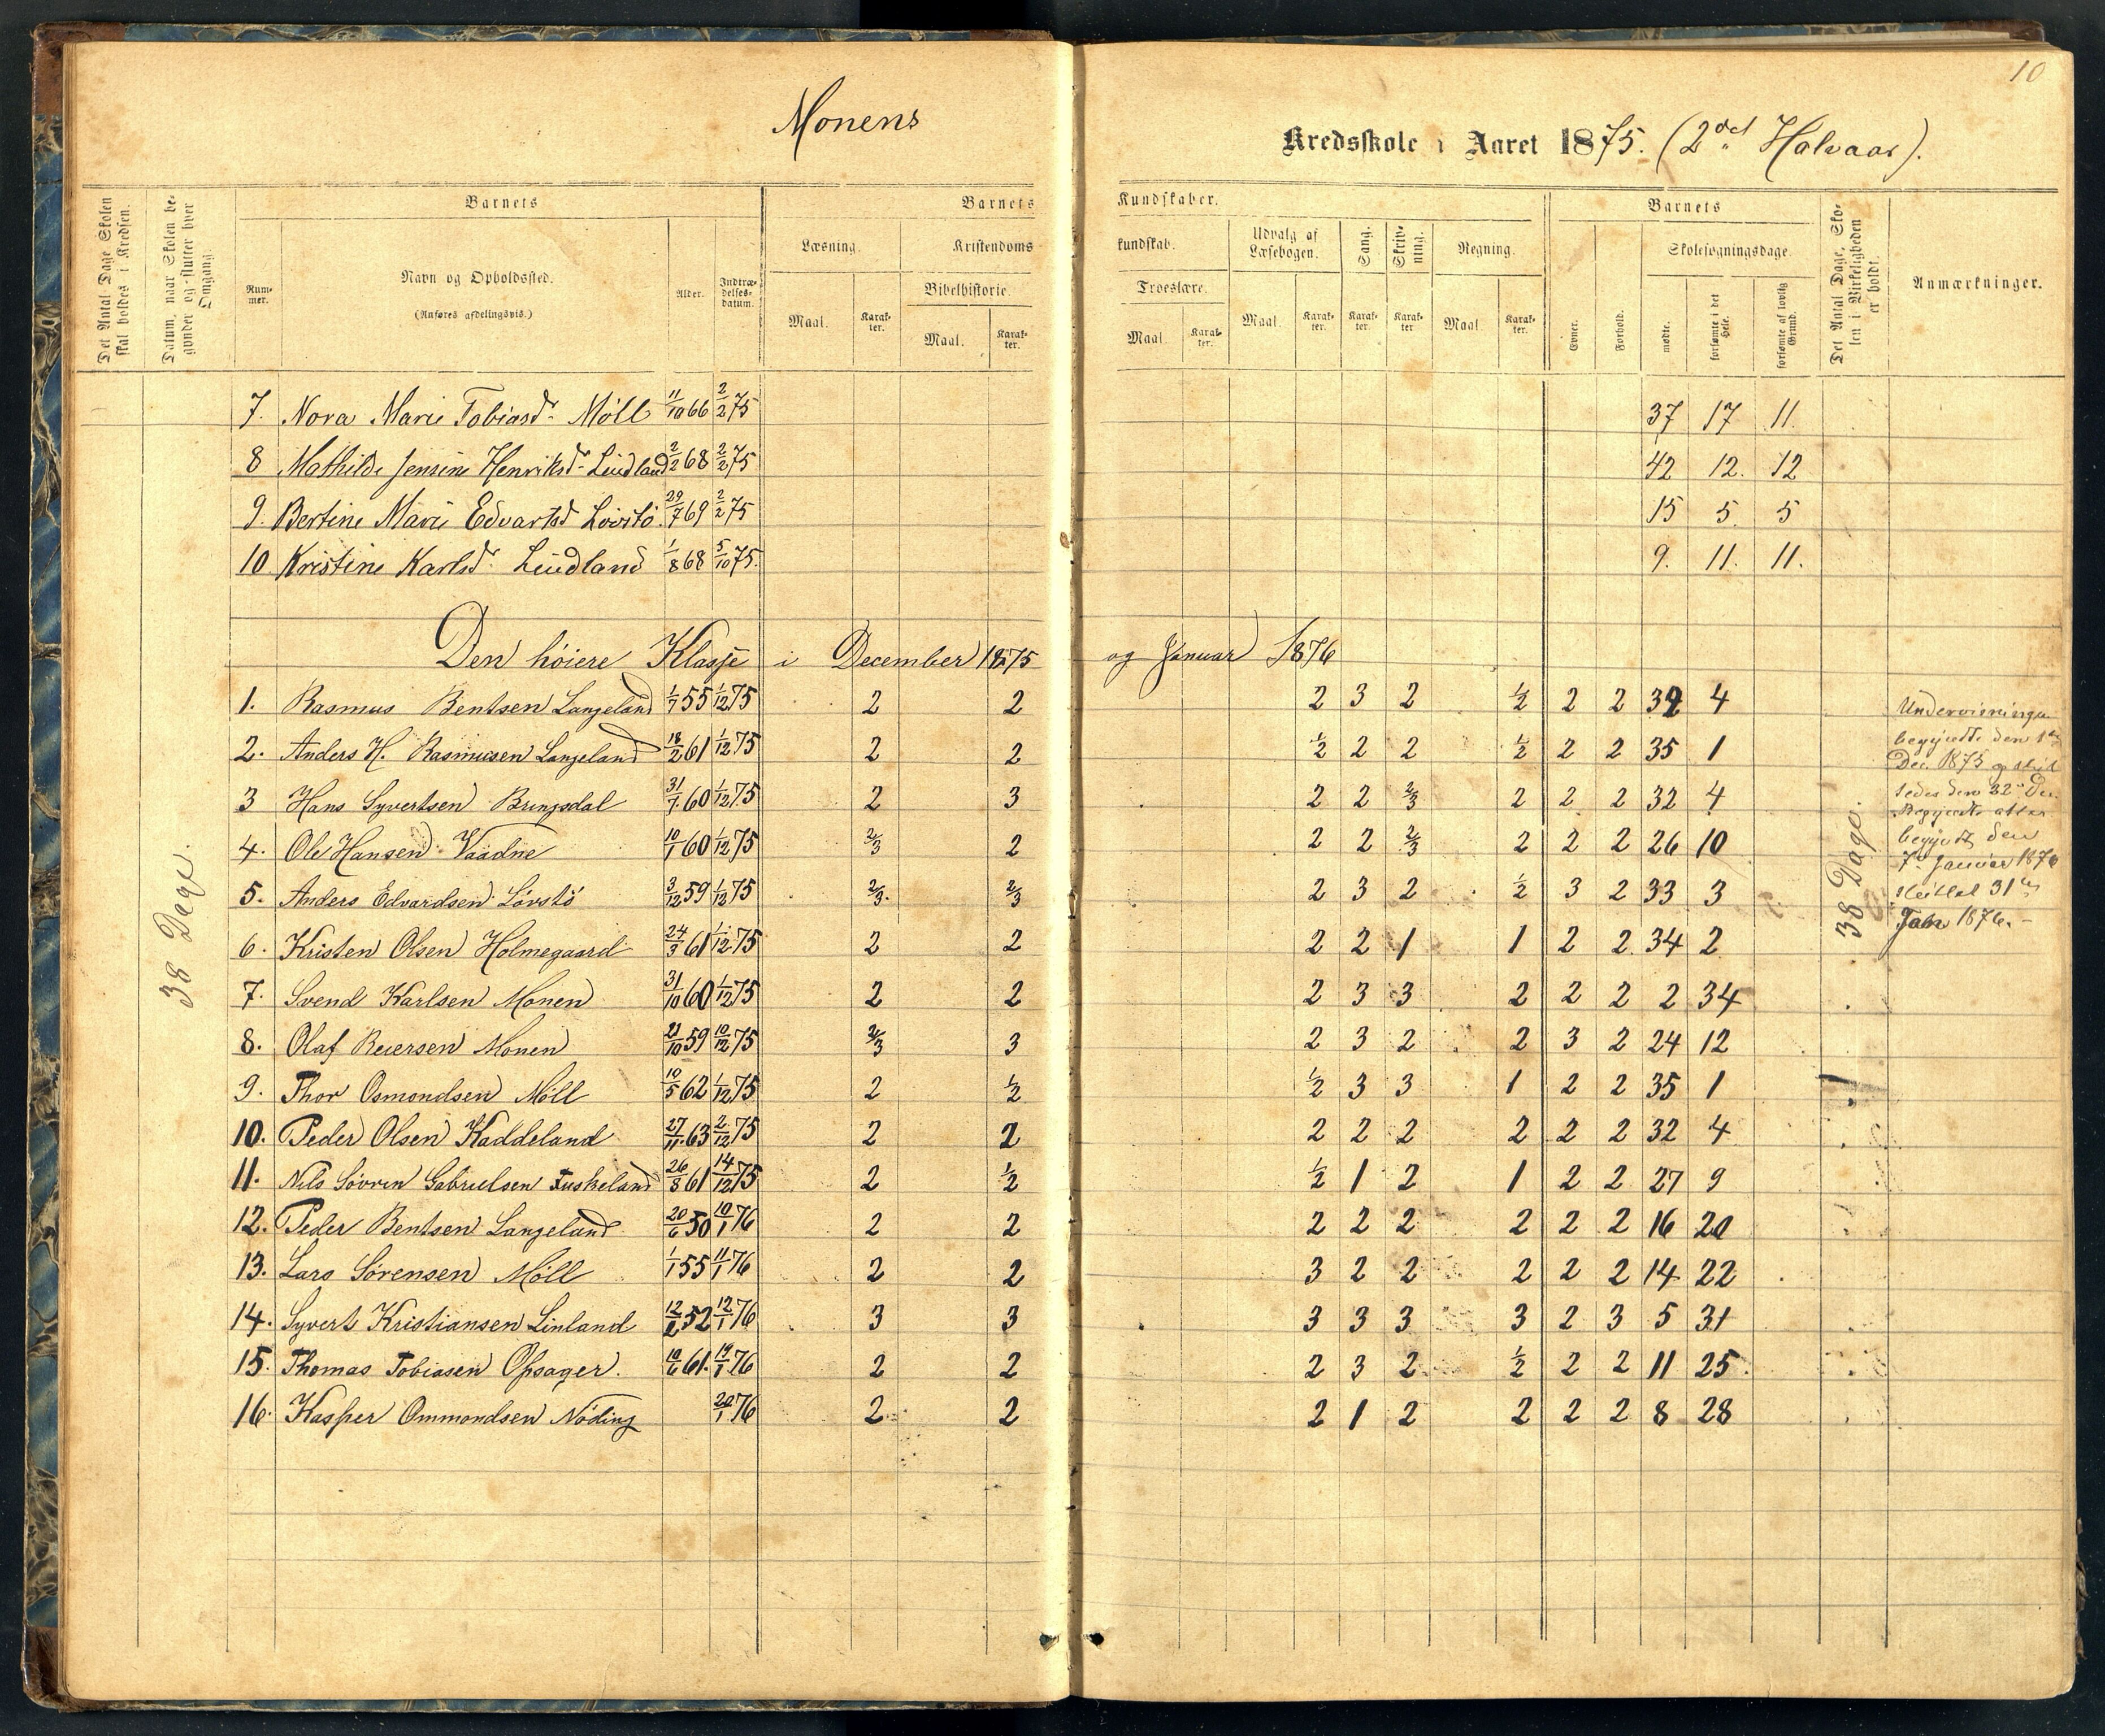 10
Monens
Kredsskole i Aaret 1875. (2det Halvaar).
Det Antal Dage Skolen skal holdes i Kredsen.
Datum, naar Skolen begynder og slutter hver Omgang.
Barnets
Barnets
Kundskaber.
Barnets
Det Antal Dage, Skolen i Virkeligheden er holdt.
Anmærkninger.
Nummer.
Navn og Opholdssted.
(Anføres afdelingsvis.)
Alder.
Indtrædelsesdatum.
Læsning.
Kristendoms
kundskab.
Udvalg af Læsebogen.
Sang.
Skrivning.
Regning.
Evner.
Forhold.
Skolesøgningsdage.
Maal.
Karakter.
Bibelhistorie.
Maal.
Karakter.
Troeslære.
Maal.
Karakter.
Maal.
Karakter.
Karakter.
Karakter.
Maal.
Karakter.
mødte.
forsømte i det Hele.
forsømte af lovlig Grund.
7. Nora Marie Tobiasdr. Möll 11/10 66 2/2 75 37 17 11.
8 Mathilde Jensine Henriksdr. Lindland 2/2 68 2/2 75 42 12. 12
9. Bertine Marie Edvartsd Lövstö. 29/7 69 2/2 75 15 5. 5
10 Kristine Karlsdr. Lindland 1/8 68 5/10 75. 9. 11. 11.
Den höiere Klasse i December 1875 og Januar 1876
1. Rasmus Bentsen Langeland 1/7 55 1/12 75 2 2 2 3 2 1/2 2 2 32 4
2. Anders H. Rasmusen Langeland 18/2 61 1/12 75 2 2 1/2 2 2 1/2 2 2 35 1
3 Hans Syvertsen Bringsdal 31/7 60 1/12 75 2 3 2 2 2/3 2 2 2 32 4
4. Ole Hansen Vaadne 10/1 60 1/12 75 2/3 2 2 2 2/3 2 2 2 26 10
5. Anders Edvardsen Lövstö 3/12 59 1/12 75 2/3. 2/3 2 3 2 1/2 3 2 33 3
6. Kristen Olsen Holmegaard 24/3 61 1/12 75 2 2 2 2 1 1 2 2. 34 2
7. Svend Karlsen Monen 31/10 60 1/12 75 2 2 2 3 3 2 2 2 2 34
8. Olaf Reiersen Monen 21/10 59 10/12 75 2/3 3 2 3 2 2 3 2 24 12
9. Thor Osmondsen Möll 10/5 62 1/12 75 2 1/2 1/2 3 3 1 2 2 35 1
10. Peder Olsen Haddeland 27/11 63 2/12 75 2 2 2 2 2 2 2 2 32 4
11. Nils Sövren Gabrielsen Tuskeland 26/8 61 14/12 75 2 1/2 1/2 1 2 1 2 2 27 9
12. Peder Bentsen Langeland 20/6 50 10/1 76 2 2 2 2 2 2 2 2 16 20
13. Lars Sörensen Möll 1/1 55 11/1 76 2 2 3 2 2 2 2 2 14 22
14. Syvert Kristiansen Linland 12/6 52 12/1 76 3 3 3 3 3 3 2 3 5 31
15. Thomas Tobiasen Opsager. 10/6 61. 19/1 76 2 2 2 3 2 1/2 2 2 11 25
16. Kasper Ommondsen Nöding 24/1 76 2 2 2 1 2 2 2 2 8 28
38 Dage.
38 Dage.
Undervisningen
begyndte den 1ste
Dec. 1875
den 22de Dec.
atter
begyndt den
7de Januar 1876
sluttet 31te
Jan 1876.